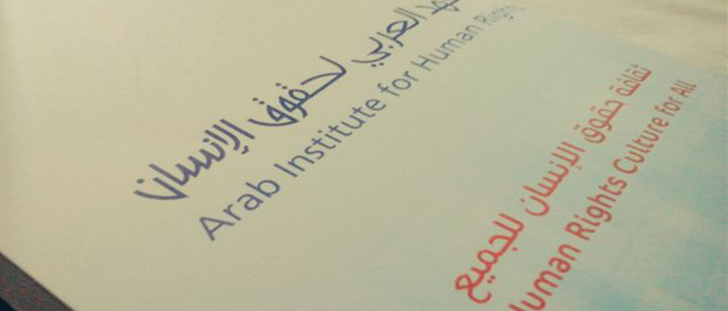 العربي لحقوق الإنسان
Arab Institute for Human Rights
ثقافة حقوق الإنسان للجميع
Human Rights Culture for All